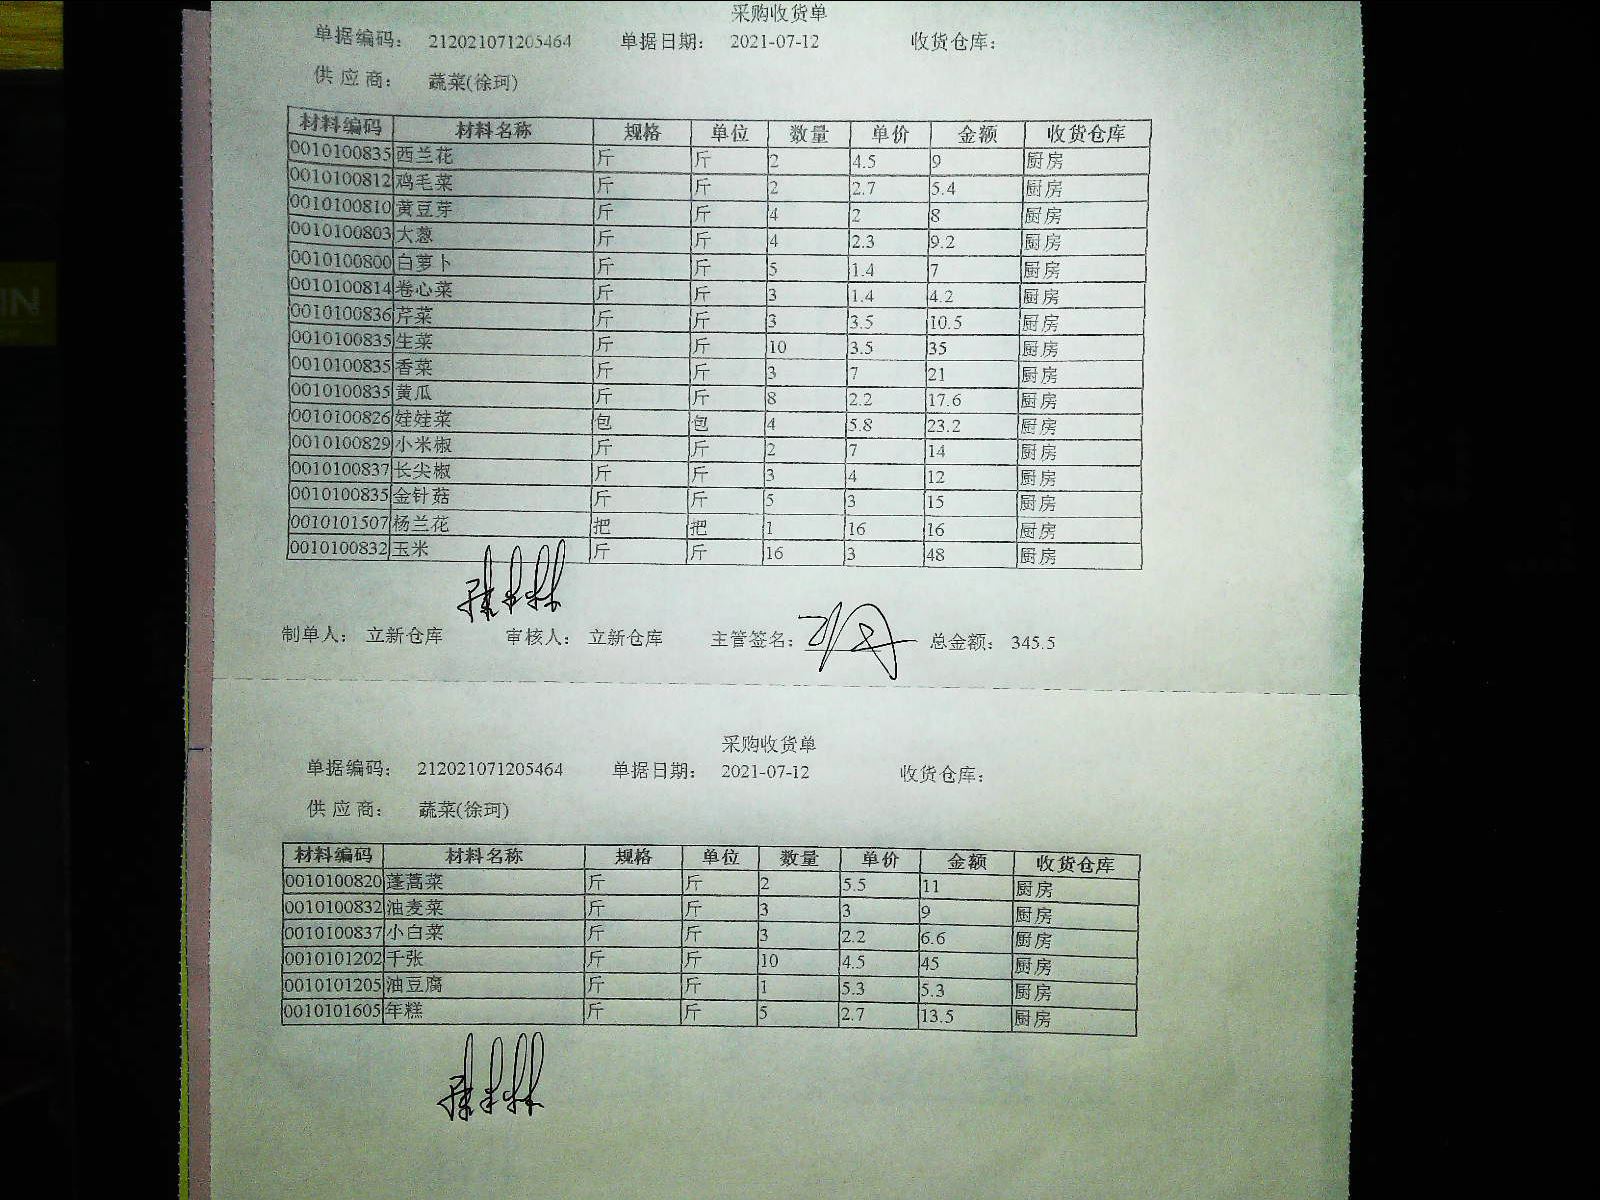 采购收货单
单据编码： 212021071205464 单据日期： 2021-07-12 收货仓库：
供 应 商： 蔬菜(徐珂)
材料编码 材料名称 规格 单位 数量 单价 金额 收货仓库
0010100835 西兰花 斤 斤 2 4.5 9 厨房
0010100812 鸡毛菜 斤 斤 2 2.7 5.4 厨房
0010100810 黄豆芽 斤 斤 4 2 8 厨房
0010100803 大葱 斤 斤 4 2.3 9.2 厨房
0010100800 白萝卜 斤 斤 5 1.4 7 厨房
0010100814 卷心菜 斤 斤 3 1.4 4.2 厨房
0010100836 芹菜 斤 斤 3 3.5 10.5 厨房
0010100835 生菜 斤 斤 10 3.5 35 厨房
0010100835 香菜 斤 斤 3 7 21 厨房
0010100835 黄瓜 斤 斤 8 2.2 17.6 厨房
0010100826 娃娃菜 包 包 4 5.8 23.2 厨房
0010100829 小米椒 斤 斤 2 7 14 厨房
0010100837 长尖椒 斤 斤 3 4 12 厨房
0010100835 金针菇 斤 斤 5 3 15 厨房
0010101507 杨兰花 把 把 1 16 16 厨房
0010100832 玉米 斤 斤 16 3 48 厨房
制单人： 立新仓库 审核人： 立新仓库 主管签名： 总金额： 345.5
采购收货单
单据编码： 212021071205464 单据日期： 2021-07-12 收货仓库：
供 应 商： 蔬菜(徐珂)
材料编码 材料名称 规格 单位 数量 单价 金额 收货仓库
0010100820 蓬蒿菜 斤 斤 2 5.5 11 厨房
0010100832 油麦菜 斤 斤 3 3 9 厨房
0010100837 小白菜 斤 斤 3 2.2 6.6 厨房
0010101202 千张 斤 斤 10 4.5 45 厨房
0010101205 油豆腐 斤 斤 1 5.3 5.3 厨房
0010101605 年糕 斤 斤 5 2.7 13.5 厨房